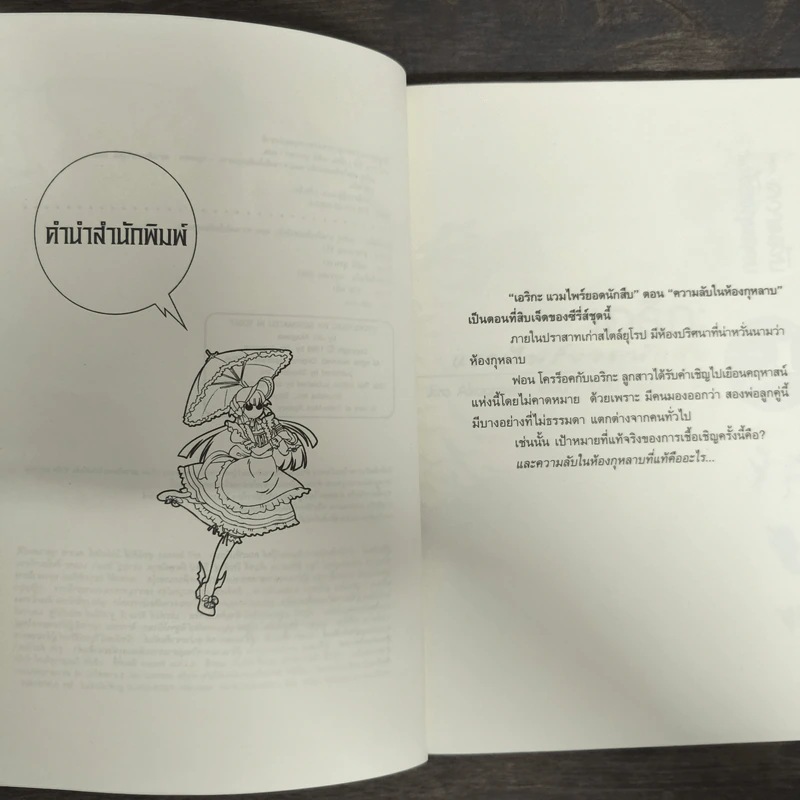 คำนำสำนักพิมพ์
"เอริกะ แวมไพร์ยอดนักสืบ" ตอน "ความลับในห้องกุหลาบ"
เป็นตอนที่สิบเจ็ดของซีรี่ส์ชุดนี้
ภายในปราสาทเก่าสไตล์ยุโรป มีห้องปริศนาที่น่าหวั่นนามว่า
ห้องกุหลาบ
ฟอน โครร็อคกับเอริกะ ลูกสาวได้รับคำเชิญไปเยือนคฤหาสน์
แห่งนี้โดยไม่คาดหมาย ด้วยเพราะ มีคนมองออกว่า สองพ่อลูกคู่นี้
มีบางอย่างที่ไม่ธรรมดา แตกต่างจากคนทั่วไป
เช่นนั้น เป้าหมายที่แท้จริงของการเชื้อเชิญครั้งนี้คือ?
และความลับในห้องกุหลาบที่แท้คืออะไร...